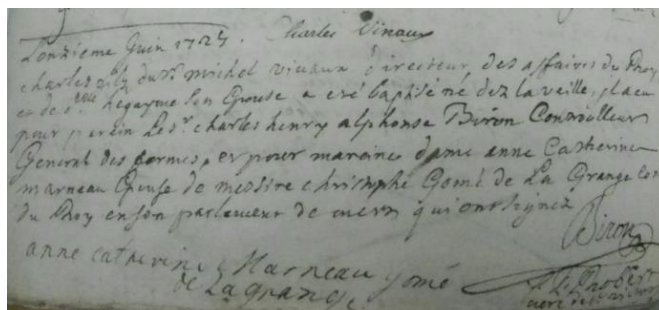 L'onzieme Juin 1725. Charles Vivaux
charles filz du Sr. michel vivaux Directeur des affaires du Roy
et de son Epouse a eté baptisé né dez la veille, il a eu
pour parein le Sr. charles henry alphonse Biron Controlleur
General des fermes, et pour mareine dame anne Catherine
marneau Epouse de messire christophe Gomé de La Grange Con
du Roy en son parlement de metz qui ont signez
Biron
anne catherine Marneau gomé
de Lagrange
curé de